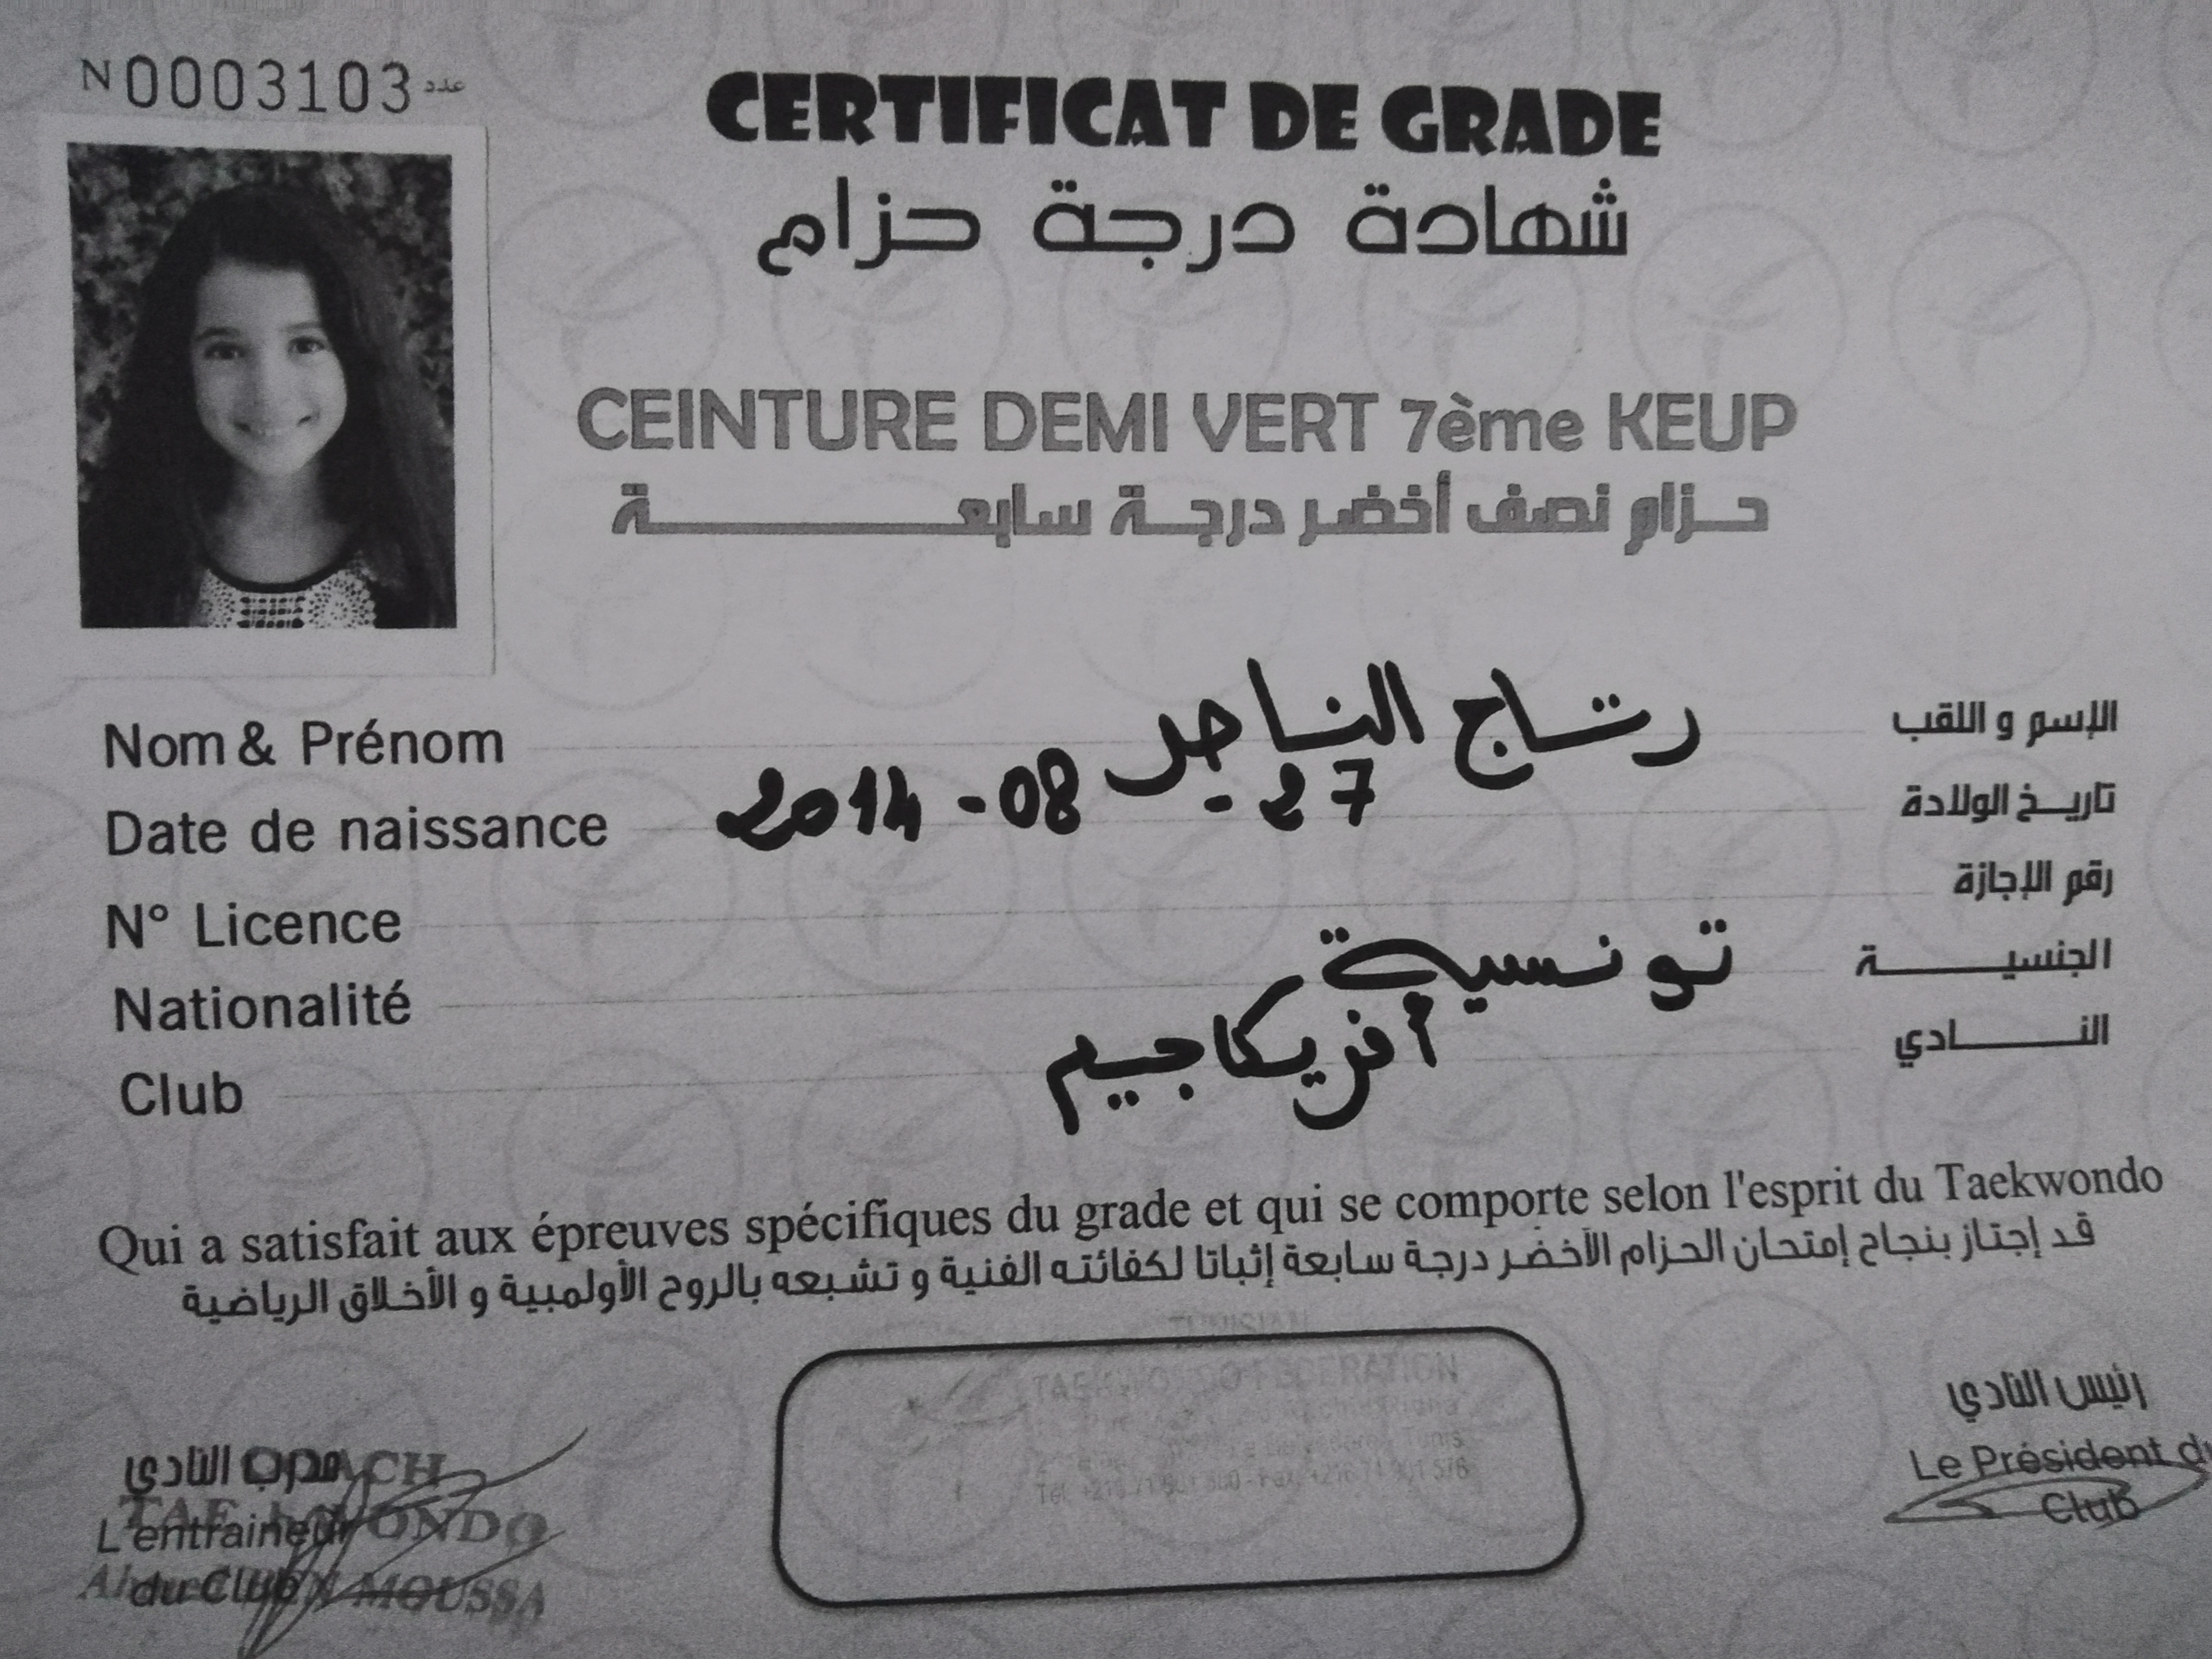 N 0003103 عدد
CERTIFICAT DE GRADE
شهادة درجة حزام
CEINTURE DEMI VERT 7ème KEUP
حزام نصف أخضر درجة سابعة
Nom & Prénom رتاج الناجر الإسم و اللقب
Date de naissance 2014 - 08 - 27 تاريخ الولادة
N° Licence رقم الإجازة
Nationalité تونسية الجنسية
Club أفريكا جيم النادي
Qui a satisfait aux épreuves spécifiques du grade et qui se comporte selon l'esprit du Taekwondo
قد إجتاز بنجاح إمتحان الحزام الأخضر درجة سابعة إثباتا لكفائته الفنية و تشبعه بالروح الأولمبية و الأخلاق الرياضية
TUNISIAN
TAEKWONDO FEDERATION
Tunis
مدرب النادي
COACH
TAEKWONDO
L'entraineur
du Club
BEN MOUSSA
رئيس النادي
Le Président du
Club